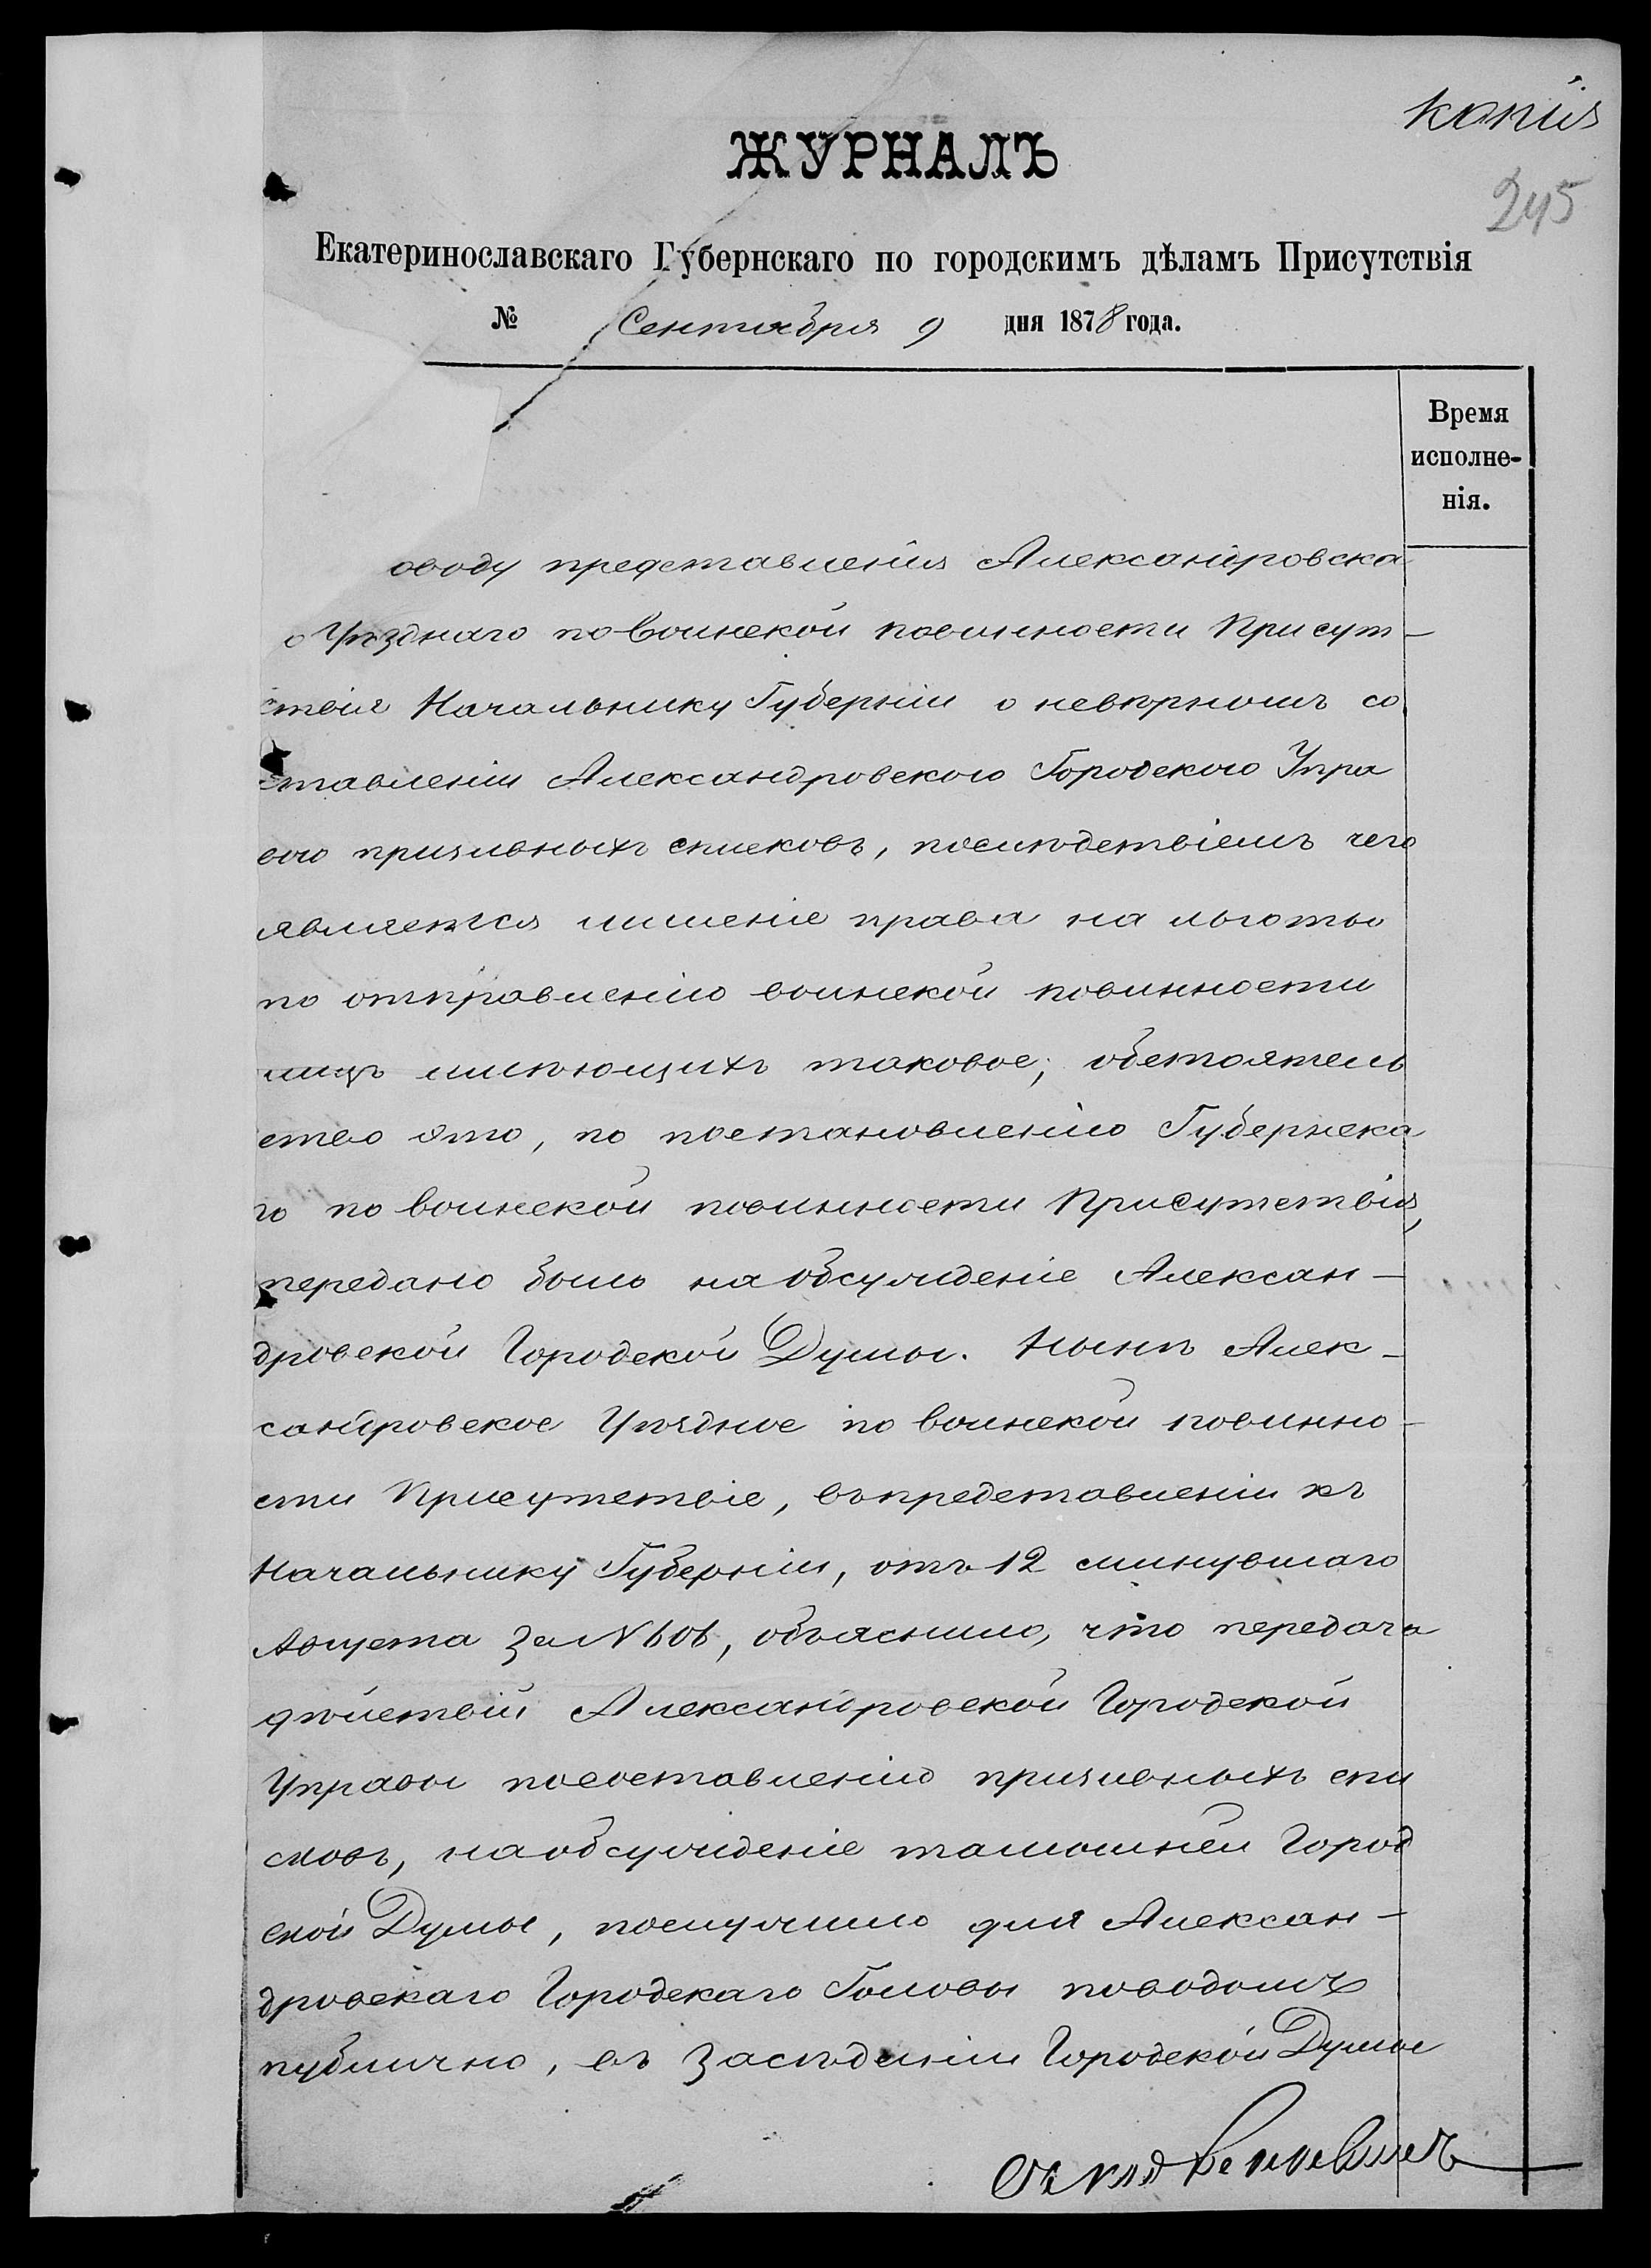 копія
ЖУРНАЛЪ
245
Екатеринославскаго Губернскаго по городскимъ дѣламъ Присутствія
№ Сентября 9 дня 1878 года.
Время
исполне-
нія.
оводу представленія Александровска
о Уѣзднаго по воинской повинности Присут-
ствія Начальнику Губерніи о невѣрномъ со
ставленіи Александровскою Городскою Упра
вою призывныхъ списковъ, послѣдствіемъ чего
является лишеніе права на льготы
по отправленію воинской повинности
лицъ имѣющихъ таковое; обстоятель
ство это, по постановленію Губернска
го по воинской повинности Присутствія,
передано было на обсужденіе Алексан-
дровской Городской Думы. Нынѣ Алек-
сандровское Уѣздное по воинской повинно-
сти Присутствіе, въ представленіи къ
Начальнику Губерніи, отъ 12 минувшаго
Августа за № 606, объяснило, что передача
дѣйствій Александровской Городской
Управы по составленію призывныхъ спи
сковъ, на обсужденіе тамошней Город
ской Думы, послужило для Алексан-
дровскаго Городскаго Головы поводомъ
публично, въ засѣданіи Городской Думы